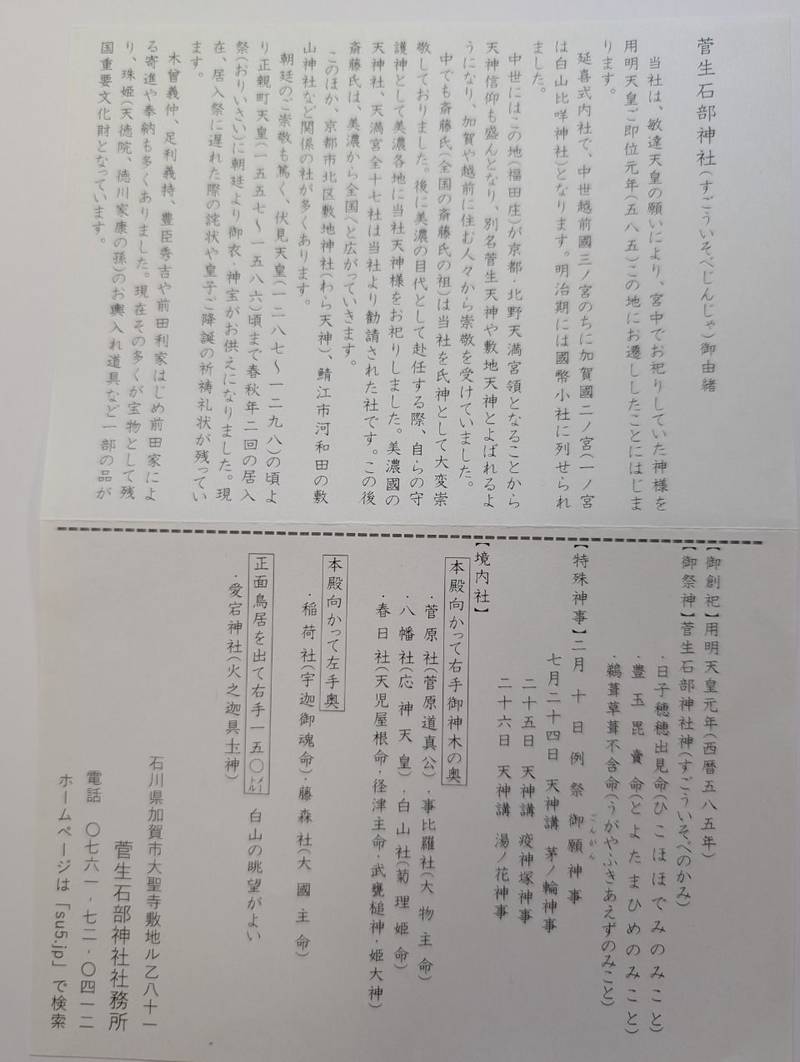 菅生石部神社(すごういそべじんじゃ)御由緒
当社は、敏達天皇の願いにより、宮中でお祀りしていた神様を
用明天皇ご即位元年(五八五)この地にお遷ししたことにはじま
ります。
延喜式内社で、中世越前國三ノ宮のちに加賀國二ノ宮(一ノ宮
は白山比咩神社)となります。明治期には國幣小社に列せられ
ました。
中世にはこの地(福田庄)が京都・北野天満宮領となることから
天神信仰も盛んとなり、別名菅生天神や敷地天神とよばれるよ
うになり、加賀や越前に住む人々から崇敬を受けていました。
中でも斎藤氏(全国の斎藤氏の祖)は当社を氏神として大変崇
敬しておりました。後に美濃の目代として赴任する際、自らの守
護神として美濃各地に当社天神様をお祀りしました。美濃國の
天神社、天満宮全十七社は当社より勧請された社です。この後
斎藤氏は、美濃から全国へと広がっていきます。
このほか、京都市北区敷地神社(わら天神)、鯖江市河和田の敷
山神社など関係の社が多くあります。
朝廷のご崇敬も篤く、伏見天皇(一二八七〜一二九八)の頃よ
り正親町天皇(一五五七〜一五八六)頃まで春秋年二回の居入
祭(おりいさい)に朝廷より御衣・神宝がお供えになりました。現
在、居入祭に遅れた際の詫状や皇子ご降誕の祈祷礼状が残ってい
ます。
木曽義仲、足利義持、豊臣秀吉や前田利家はじめ前田家によ
る寄進や奉納も多くありました。現在その多くが宝物として残
り、珠姫(天徳院、徳川家康の孫)のお輿入れ道具など一部の品が
国重要文化財となっています。
【御創祀】用明天皇元年(西暦五八五年)
【御祭神】菅生石部神社神(すごういそべのかみ)
・日子穂穂出見命(ひこほほでみのみこと)
・豊玉毘賣命(とよたまひめのみこと)
・鵜葺草葺不合命(うがやふきあえずのみこと)
【特殊神事】二月 十日 例祭 御願神事
ごんがん
七月二十四日 天神講 茅ノ輪神事
二十五日 天神講 疫神塚神事
二十六日 天神講 湯ノ花神事
【境内社】
本殿向かって右手御神木の奥
・菅原社(菅原道真公)・事比羅社(大物主命)
・八幡社(応神天皇)・白山社(菊理姫命)
・春日社(天児屋根命・径津主命・武甕槌神・姫大神)
本殿向かって左手奥
・稲荷社(宇迦御魂命)・藤森社(大國主命)
正面鳥居を出て右手一五〇メートル 白山の眺望がよい
・愛宕神社(火之迦具土神)
石川県加賀市大聖寺敷地ル乙八十一
菅生石部神社社務所
電話 〇七六一-七二-〇四一二
ホームページは「su5.jp」で検索